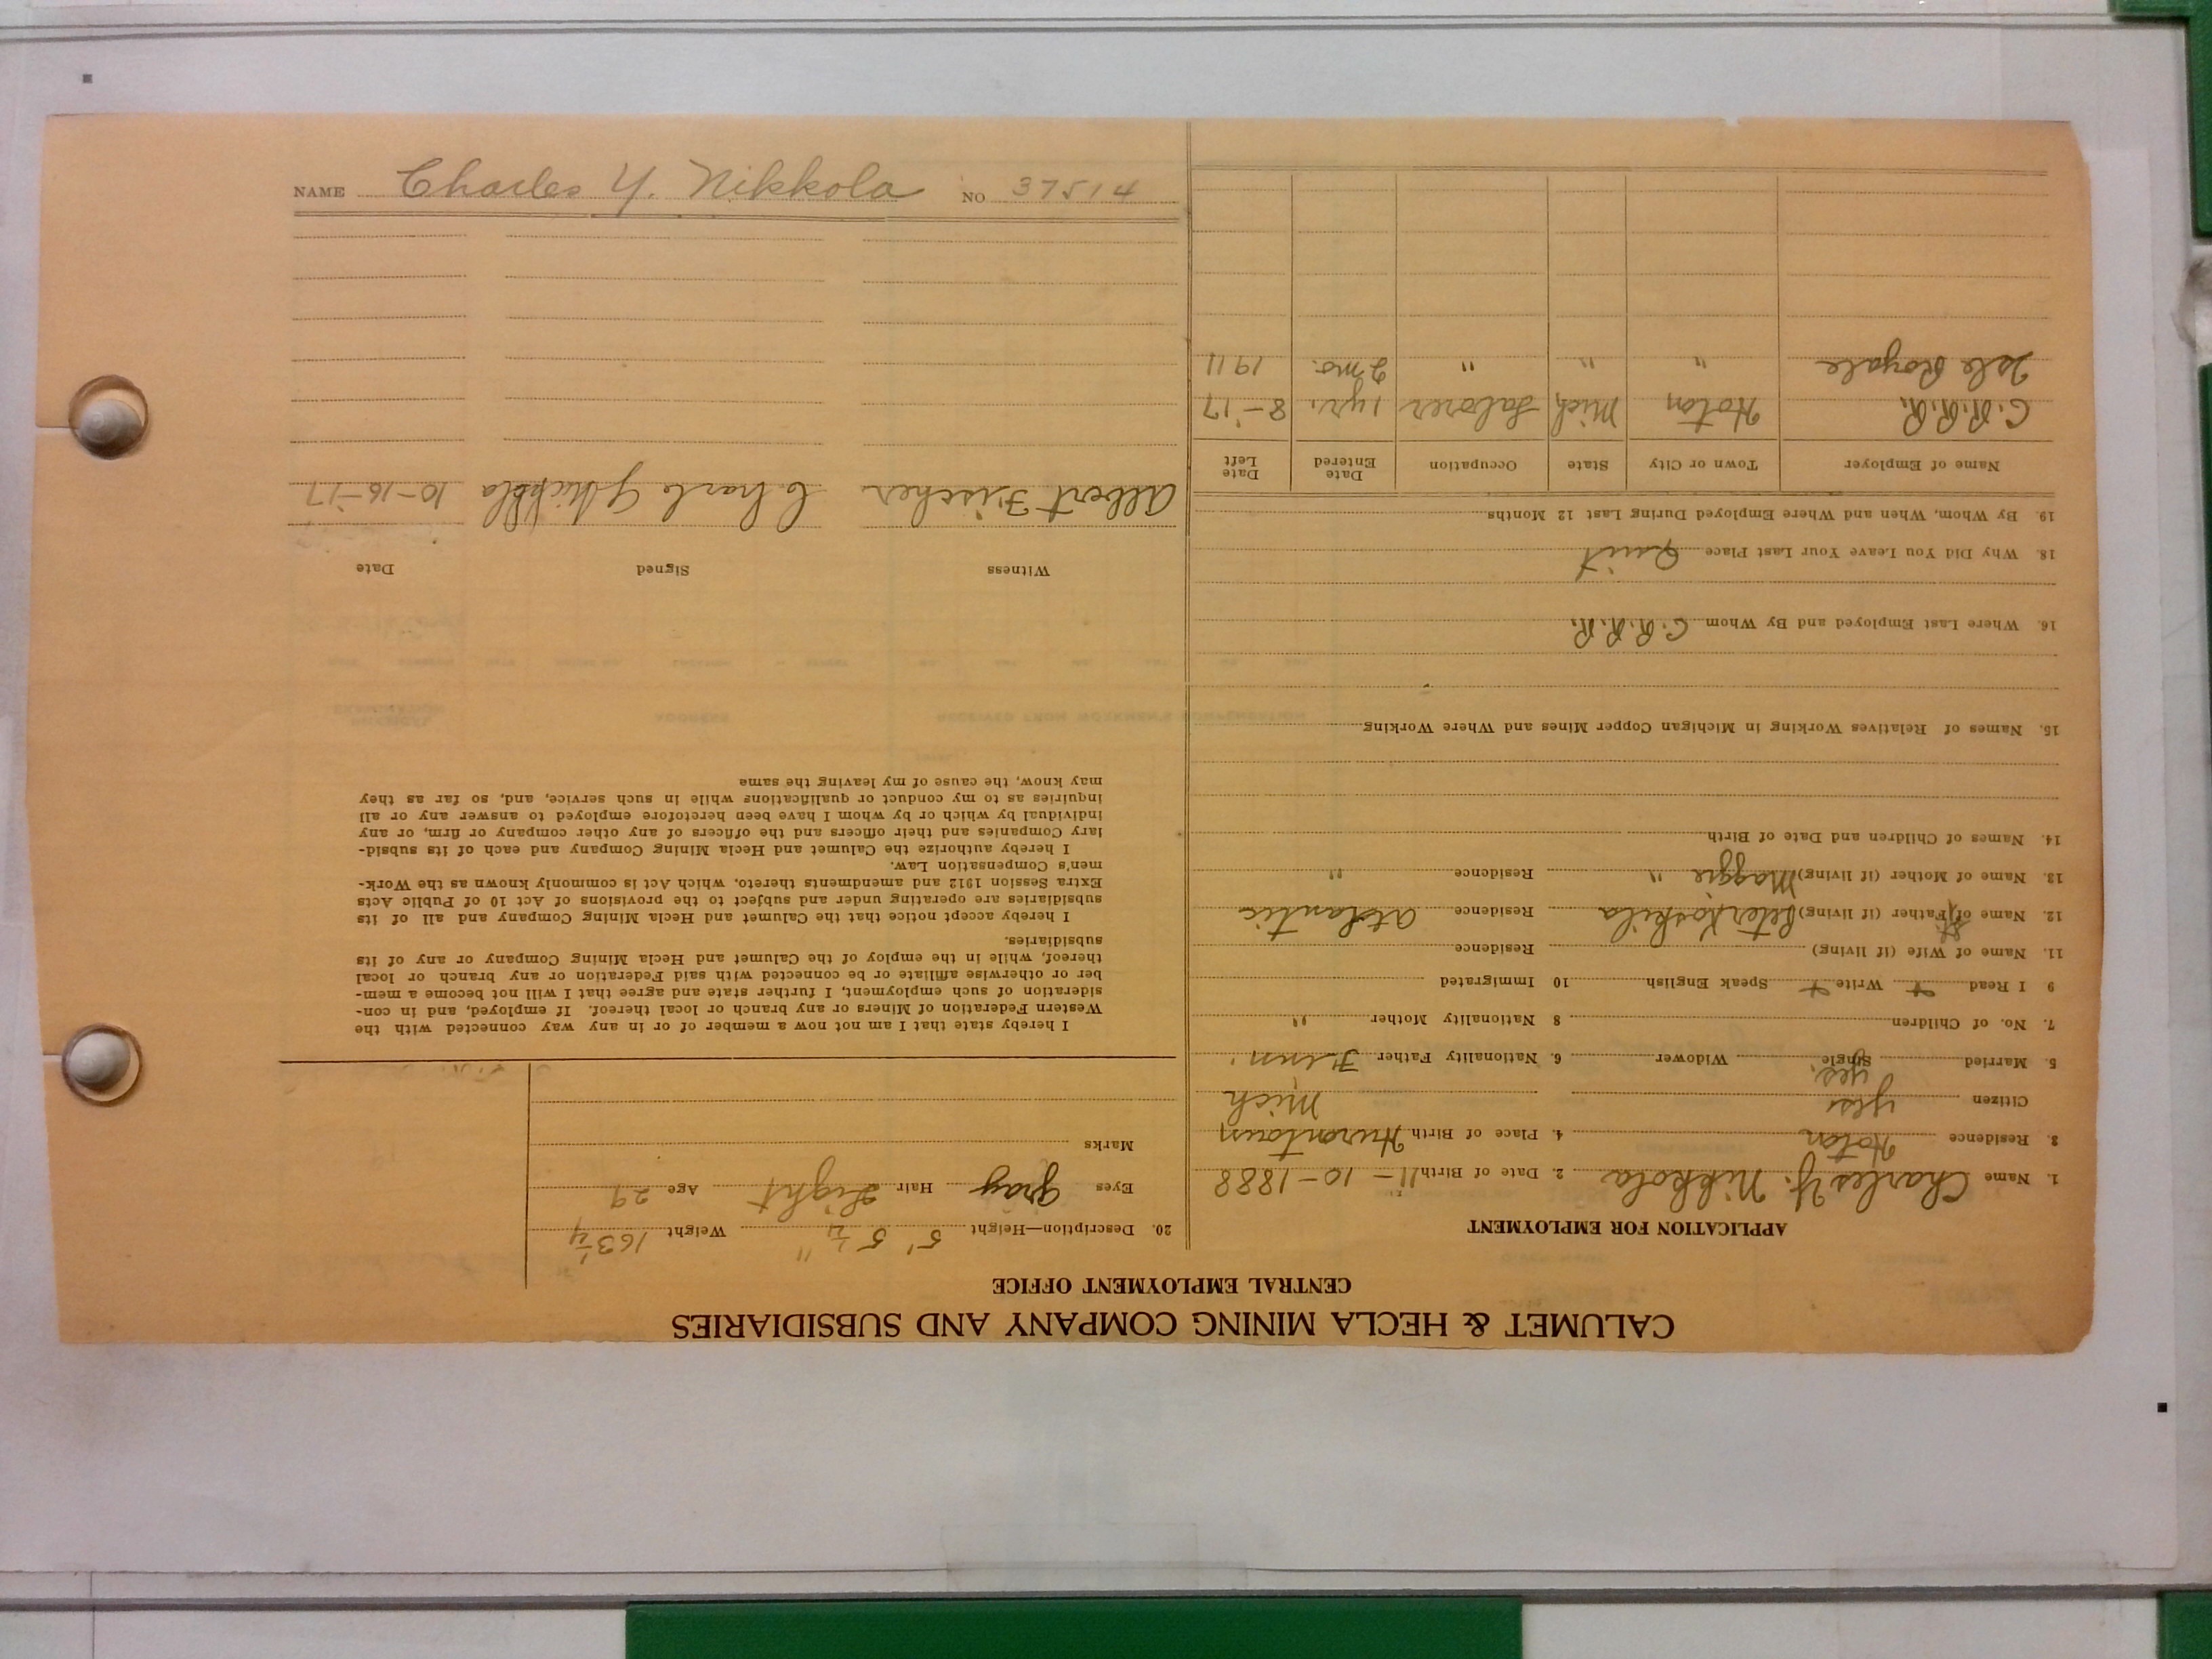 CALUMET & HECLA MINING COMPANY AND SUBSIDIARIES
CENTRAL EMPLOYMENT OFFICE
APPLICATION FOR EMPLOYMENT
1. Name Charles Y. Nikkola 2. Date of Birth 11-10-1888
3. Residence Hoton 4. Place of Birth Hurontown
Citizen yes Mich
5. Married Single yes. Widower 6. Nationality Father Finn.
7. No. of Children 8 Nationality Mother "
9 I Read + Write + Speak English 10 Immigrated
11. Name of Wife (if living) Residence
12. Name of St. Father (if living) Peter Koskila Residence Atlantic
13. Name of Mother (if living) Maggie " Residence "
14. Names of Children and Date of Birth
15. Names of Relatives Working in Michigan Copper Mines and Where Working
16. Where Last Employed and By Whom C.R.R.R.
18. Why Did You Leave Your Last Place Quit
19. By Whom, When and Where Employed During Last 12 Months
Name of Employer Town or City State Occupation Date Entered Date Left
C.R.R.R. Hoton Mich Laborer 1 yr. 8-'17
Isle Royale " " " 2 mo. 1911
20. Description—Height 5' 5 1/4" Weight 163 1/4
Eyes Gray Hair Light Age 29
Marks
I hereby state that I am not now a member of or in any way connected with the
Western Federation of Miners or any branch or local thereof. If employed, and in con-
sideration of such employment, I further state and agree that I will not become a mem-
ber or otherwise affiliate or be connected with said Federation or any branch or local
thereof, while in the employ of the Calumet and Hecla Mining Company or any of its
subsidiaries.
I hereby accept notice that the Calumet and Hecla Mining Company and all of its
subsidiaries are operating under and subject to the provisions of Act 10 of Public Acts
Extra Session 1912 and amendments thereto, which Act is commonly known as the Work-
men's Compensation Law.
I hereby authorize the Calumet and Hecla Mining Company and each of its subsid-
iary Companies and their officers and the officers of any other company or firm, or any
individual by which or by whom I have been heretofore employed to answer any or all
inquiries as to my conduct or qualifications while in such service, and, so far as they
may know, the cause of my leaving the same
Witness Signed Date
Albert Fischer Charle Y Nickola 10-16-'17
NAME Charles Y. Nikkola NO 37514